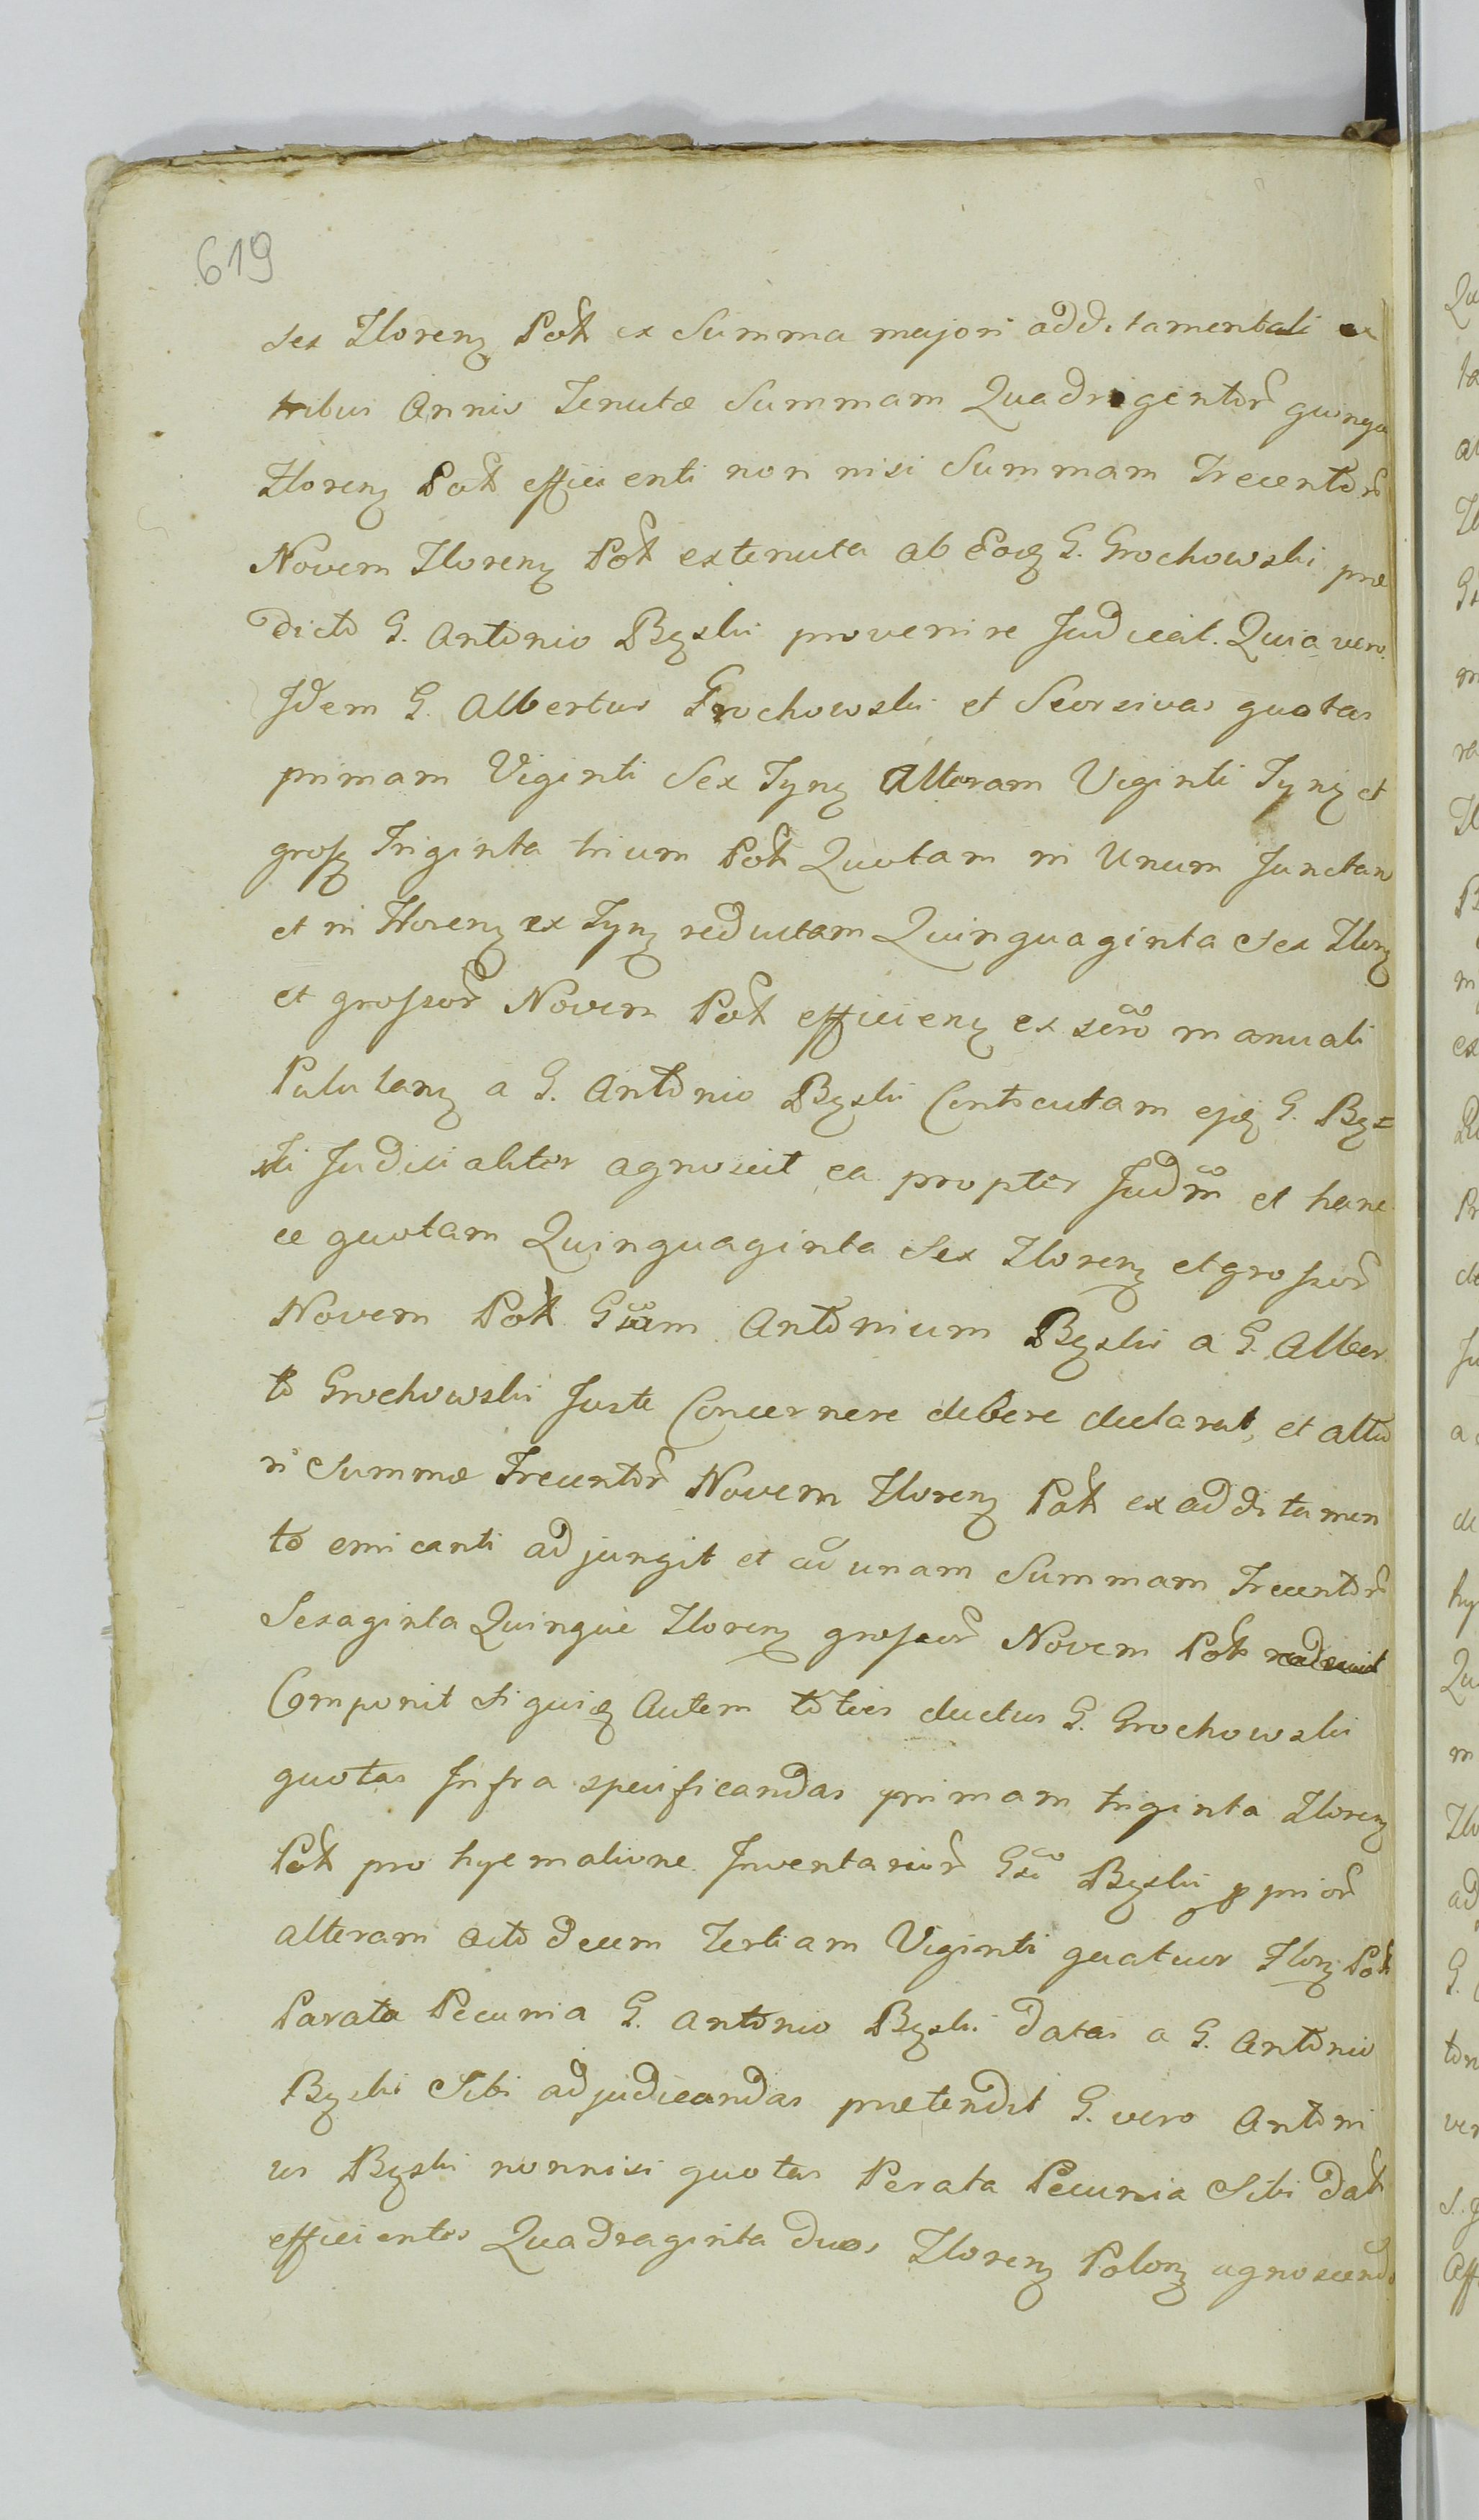 619
sex Floreng Polt ex Summa majori additamentali ex
tribus Annis Tenutæ Summam Quadrigentor quinque
Floreng Polt efficienti non nisi Summam Trecentor
Novem Floreng Polt extenuta ab Eodz G. Grochowski præ
dicto G. Antonio Bystri provenire Judicat. Quia vero
Idem G. Albertus Grochowski et Seorsivas quotas
primam Viginti Sex Tynz Alteram Viginti Tynz et
grossz Triginta trium Polt Quotam in Unum Junctam
et in Florenz ex Tynz reductam Quinquaginta Sex Florz
et grossor Novem Polt efficienz ex scro manuali
Pulutanz a G. Antonio Byski Contentam ejdz G. By=
ski Judicialiter agnoscit ea propter Judm et hanc
ce quotam Quinquaginta Sex Florenz et grossor
Novem Polt Gsum Antonium Byski a G. Alber
to Grochowski Juste Concernere debere declarat, et alte
ri Summæ Trecentor Novem Florenz Polt ex additamen
to emicanti adjungit et ad unam Summam Trecentor
Sexaginta Quinque Florenz grossor Novem Polt
Componit Siquidz Autem toties dictus G. Grochowski
quotas Infra specificandas primam triginta Florenz
Polt pro hyematione Inventarior Gsi Byski pprior
alteram octo decem Tertiam Viginti quatuor Florz Polt
Parata Pecunia G. Antonio Byski datas a G. Antonio
Byski Sibi adjudicandas prætendit G. vero Antoni
us Byski nonnisi quotas Parata Pecunia Sibi dat
efficientes Quadraginta duos Florenz Polonz agnoscendo